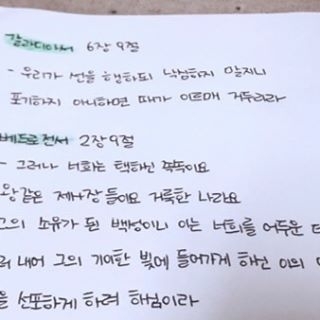 갈라디아서 6장 9절
- 우리가 선을 행하되 낙심하지 말지니
포기하지 아니하면 때가 이르매 거두리라
베드로전서 2장 9절
- 그러나 너희는 택하신 족속이요
왕같은 제사장들이요 거룩한 나라요
그의 소유가 된 백성이니 이는 너희를 어두운 데
내어 그의 기이한 빛에 들어가게 하신 이의
을 선포하게 하려 하심이라